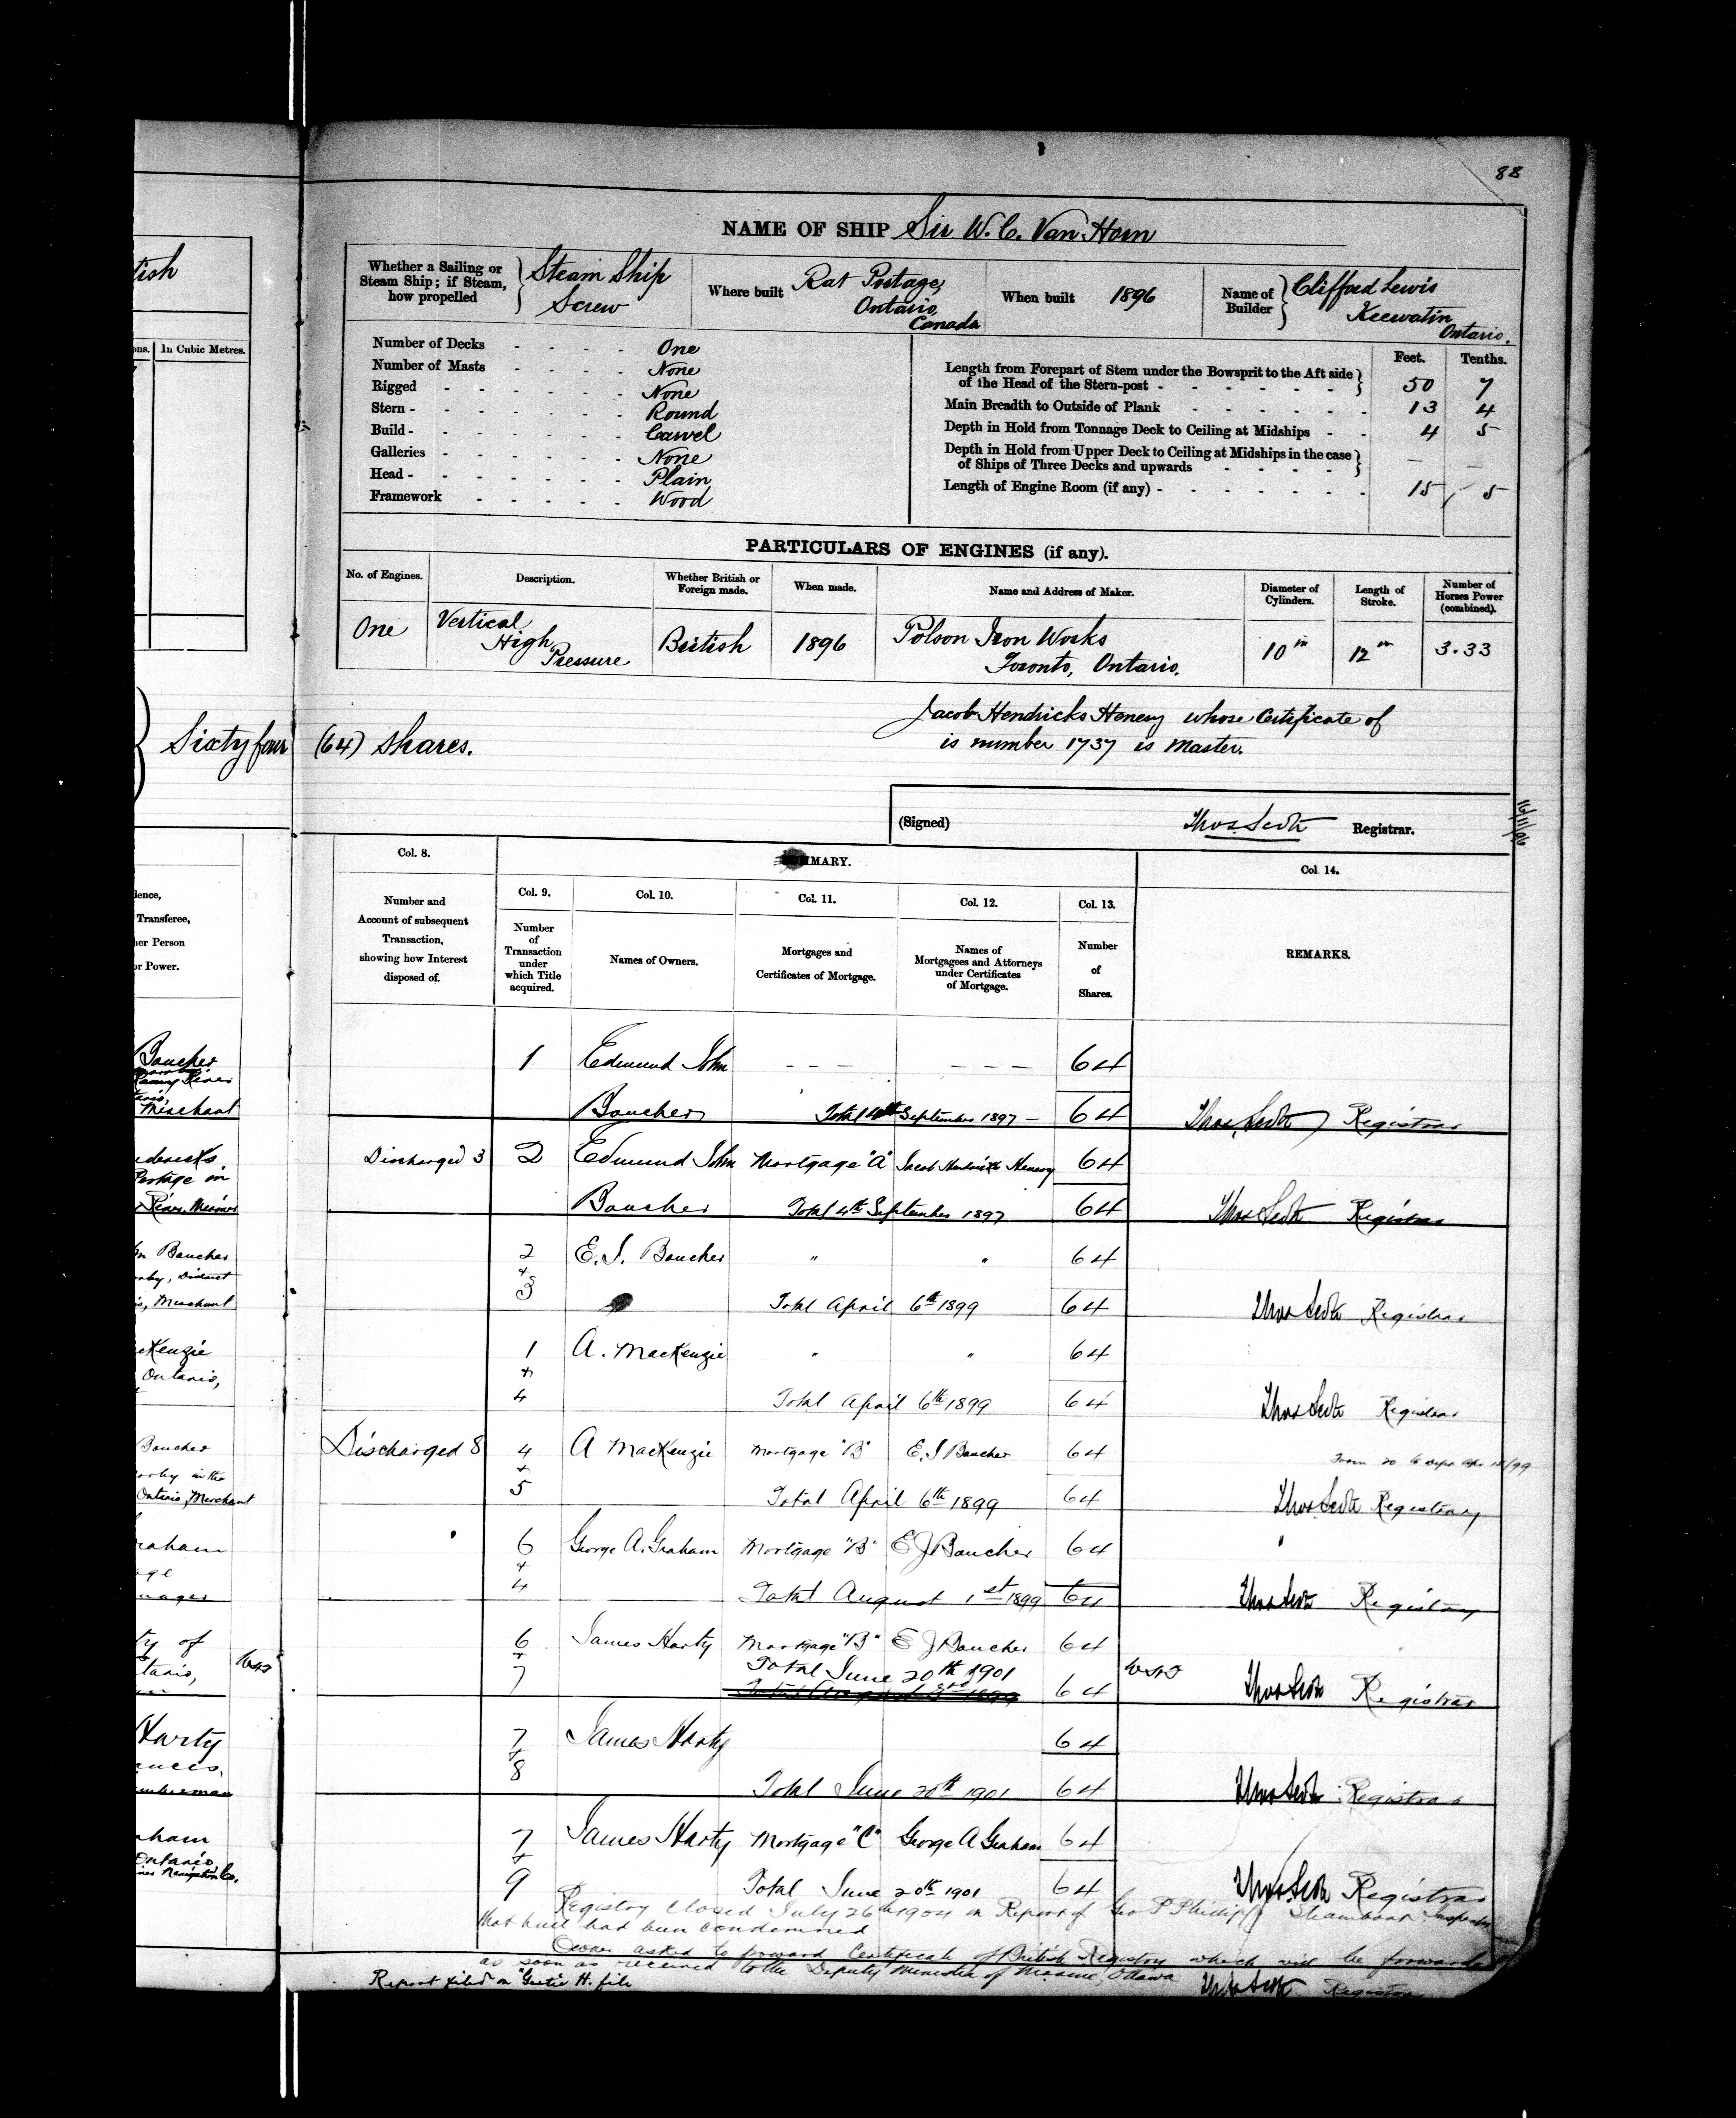 88
NAME OF SHIP Sir W. C. Van Horn
tish
Whether a Sailing or Steam Ship; if Steam, how propelled } Steam Ship Screw
Where built Rat Portage, Ontario, Canada
When built 1896
Name of Builder } Clifford Lewis Keewatin Ontario.
ons. In Cubic Metres.
Number of Decks - - - - One
Number of Masts - - - - None
Rigged - - - - - None
Stern - - - - - - Round
Build - - - - - - Carvel
Galleries - - - - - None
Head - - - - - - Plain
Framework - - - - Wood
Feet. Tenths.
Length from Forepart of Stem under the Bowsprit to the Aft side
of the Head of the Stern-post - - - - - - } 50 7
Main Breadth to Outside of Plank - - - - - - 13 4
Depth in Hold from Tonnage Deck to Ceiling at Midships - - 4 5
Depth in Hold from Upper Deck to Ceiling at Midships in the case
of Ships of Three Decks and upwards - - - - } — —
Length of Engine Room (if any) - - - - - - - 15 5
PARTICULARS OF ENGINES (if any).
No. of Engines. Description. Whether British or Foreign made. When made. Name and Address of Maker. Diameter of Cylinders. Length of Stroke. Number of Horses Power (combined).
One Vertical High Pressure British 1896 Polson Iron Works Toronto, Ontario. 10 in 12 in 3.33
Jacob Hendricks Henesy whose Certificate of
is number 1737 is Master.
Sixty four (64) shares.
(Signed) Thos. Registrar.
16/11/96
Col. 8. SUMMARY. Col. 14.
Col. 9. Col. 10. Col. 11. Col. 12. Col. 13.
Number and Account of subsequent Transaction, showing how Interest disposed of.
Number of Transaction under which Title acquired.
Names of Owners.
Mortgages and Certificates of Mortgage.
Names of Mortgagees and Attorneys under Certificates of Mortgage.
Number of Shares.
REMARKS.
lence,
Transferee,
her Person
or Power.
Boucher
Rainy River
Merchant
1 Edmund John — — — — — — 64
Boucher Total 4th September 1897 — 64 Thos Registrar
Discharged 3 2 Edmund John Mortgage "A" Jacob Hendricks Henesy 64
Boucher Total 4th September 1897 64 Thos Registrar
dericks
Portage in
River, Mariner
hn Boucher
District
Merchant
2 + 3 E. J. Boucher " " 64
Total April 6th 1899 64 Thos Registrar
cKenzie
Ontario,
1 + 4 A. MacKenzie " " 64
Total April 6th 1899 64 Thos Registrar
Boucher
in the
Ontario, Merchant
Discharged 8 4 + 5 A MacKenzie Mortgage "B" E. J Boucher 64
Total April 6th 1899 64 Thos Registrar
raham
age
nager
6 + 4 George A. Graham Mortgage "B" E J Boucher 64 "
Total August 1st 1899 64 Thos Registrar
ty of
tario,
6 + 7 James Harty Mortgage "B" E J Boucher 64
Total June 20th 1901 64 Thos Registrar
Harty
ances,
umberman
7 + 8 James Harty 64
Total June 20th 1901 64 Thos Registrar
aham
Ontario
Navigation Co.
7 + 9 James Harty Mortgage "C" George A Graham 64
Total June 20th 1901 64 Thos Registrar
Registry closed July 26th 1904 on Report of Geo P Phillips Steamboat Inspector
that hull had been condemned
Owner asked to forward Certificate of British Registry which will be forwarded
as soon as received to the Deputy Minister of Marine, Ottawa
Report filed on "Gertie H. file Thos Registrar